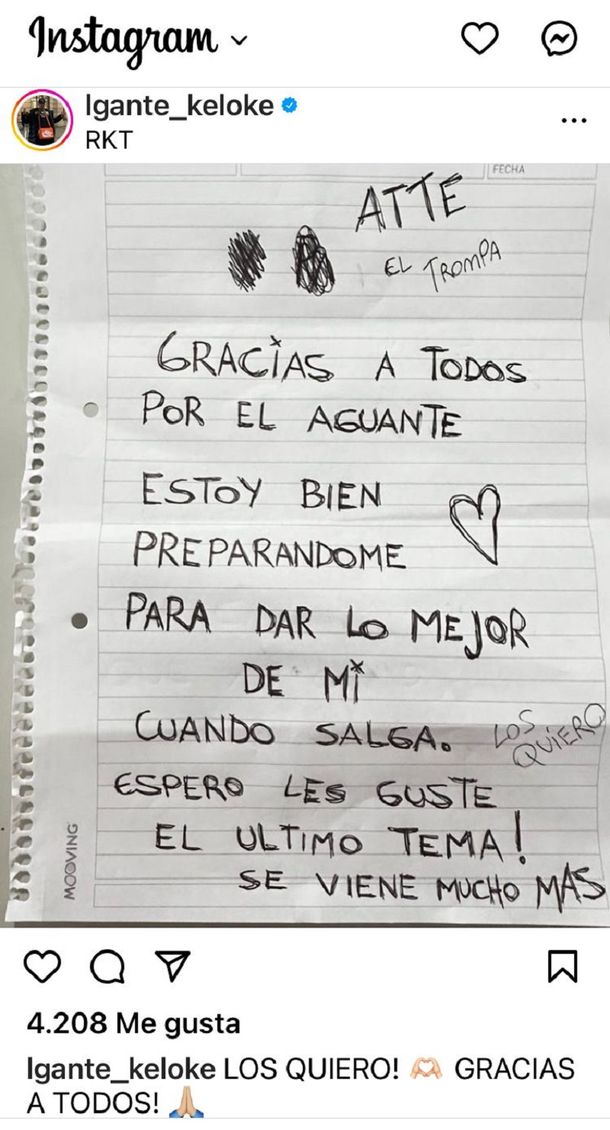 Instagram
lgante_keloke
RKT
FECHA
ATTE
EL TROMPA
GRACIAS A TODOS
POR EL AGUANTE
ESTOY BIEN
PREPARANDOME
PARA DAR LO MEJOR
DE MI
CUANDO SALGA.
LOS
QUIERO
ESPERO LES GUSTE
EL ULTIMO TEMA!
SE VIENE MUCHO MAS
MOOVING
4.208 Me gusta
lgante_keloke LOS QUIERO! 🫶🏻 GRACIAS
A TODOS! 🙏🏼